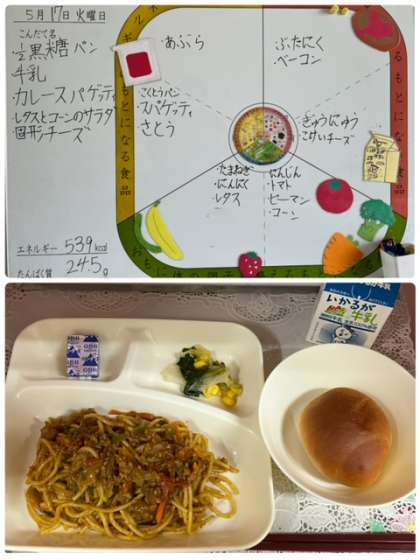 5月17日火曜日
こんだて名
½黒糖パン
牛乳
カレースパゲッティ
レタスとコーンのサラダ
固形チーズ
エネルギー 539kcal
たんぱく質 24.5g
あぶら
こくとうパン
スパゲッティ
さとう
ぶたにく
ベーコン
ぎゅうにゅう
こけいチーズ
・たまねぎ
・にんにく
・レタス
・にんじん
・トマト
・ピーマン
・コーン
もとになる食品
るもとになる食品
いかるが
牛乳